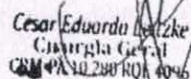 Cesar Eduardo
Cirurgia Geral
CRM-PA 10.280 RQE 4096